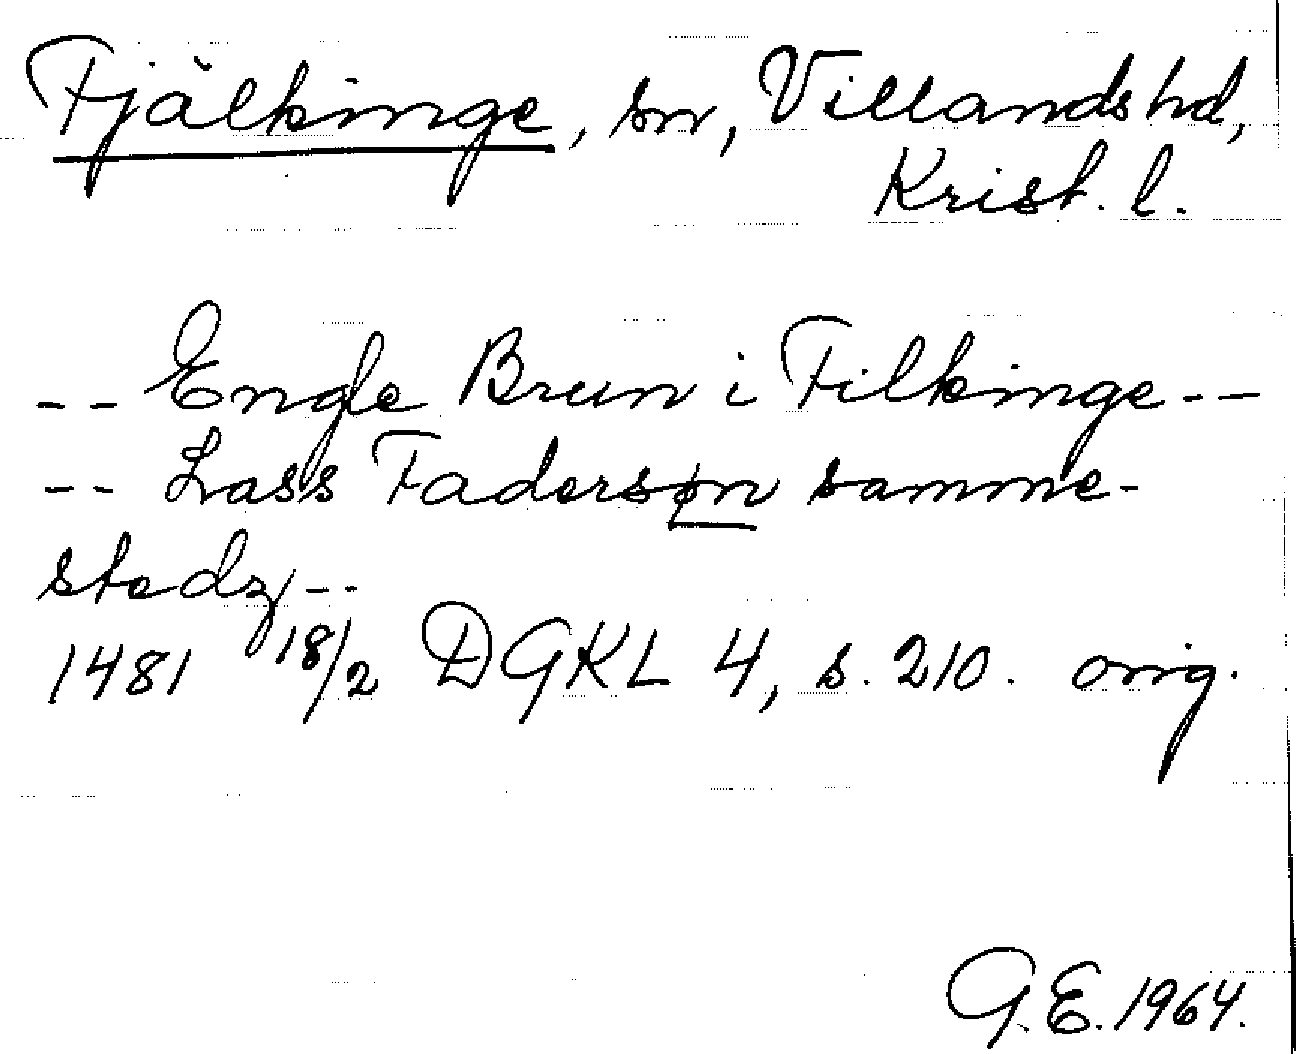 Fjälkinge, sn, Villands hd,
Krist. l.
-- Engle Brun i Filkinge --
-- Lass Fadersøn samme-
stedz --
1481 18/2 DGKL 4, s. 210. orig.
G.E. 1964.